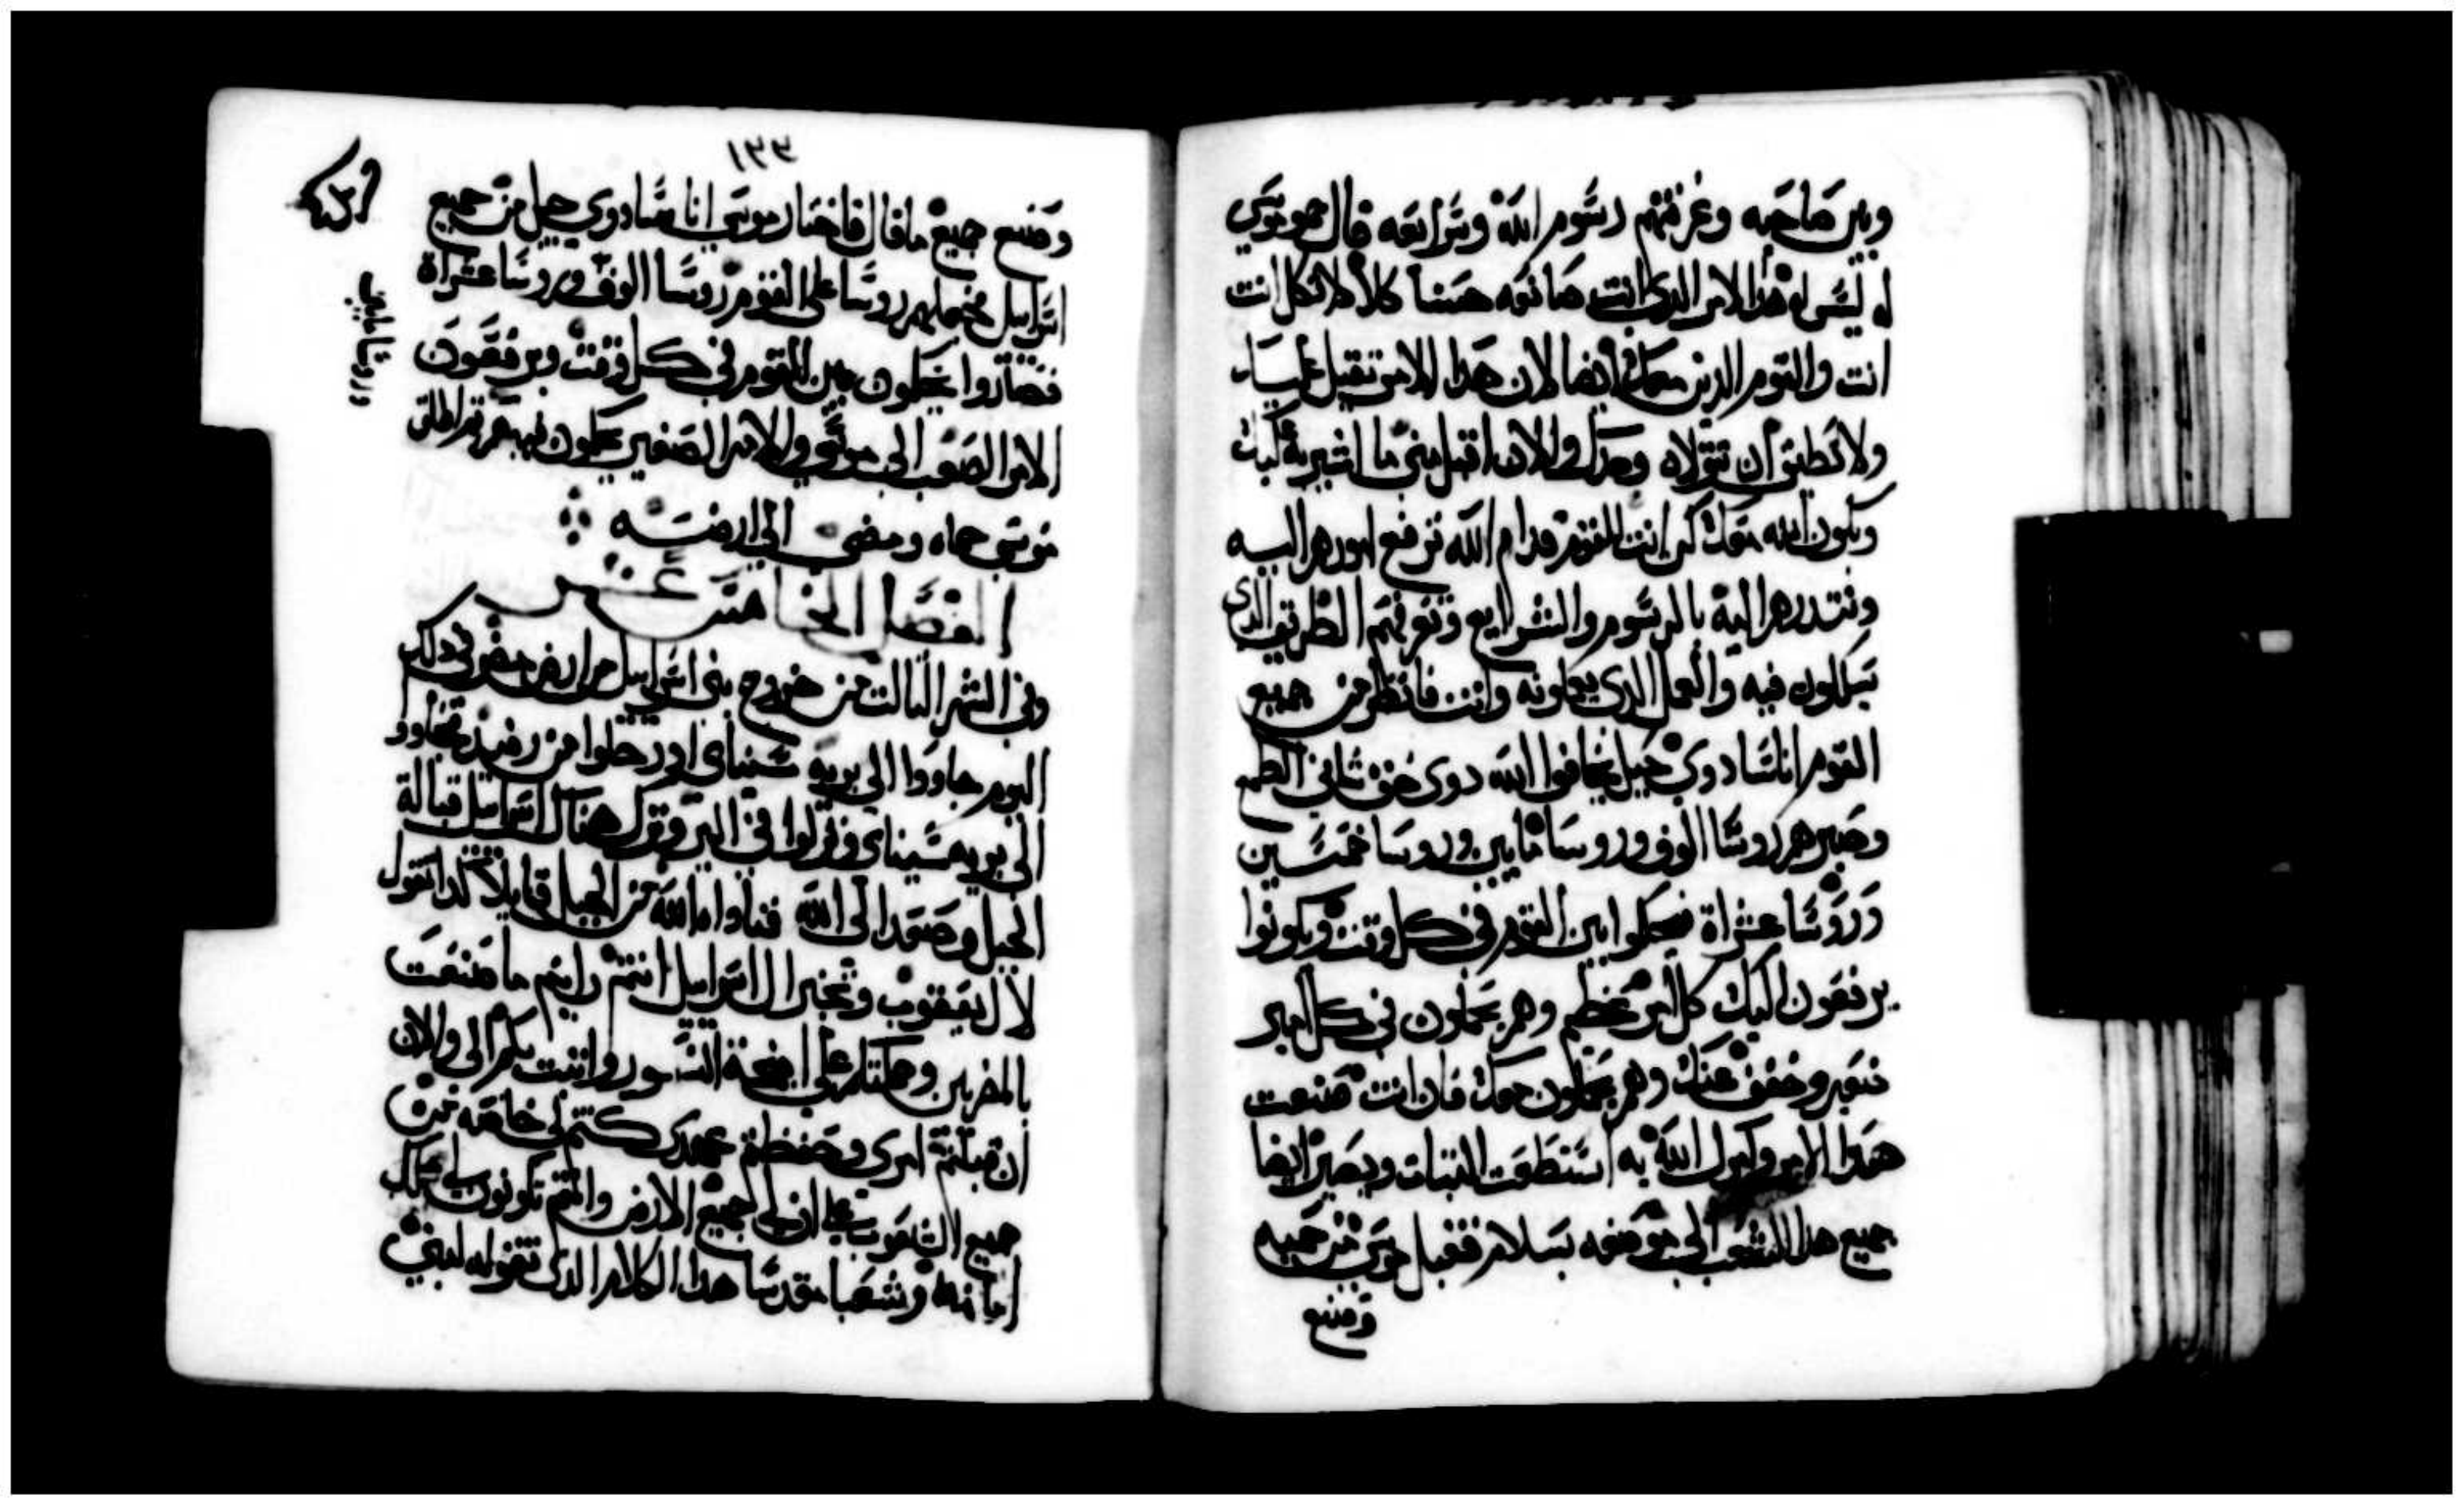 وبين صاحبه وعرفتهم رسوم الله وشرايعه قال حمو موسي
له ليس هو هذا الامر الدي انت صانعه حسنا كلالا تكل انت
انت والقوم الدين معك ايضا لان هذا الامر تقيل عليك
ولا تطيق ان تتولاه وحدك والان اقبل مني ما اشير به عليك
ويكون الله معك كن انت للقوم قدام الله ترفع امورهم اليه
وتندرهم اليه بالرسوم والشرايع وتعرفهم الطريق الدي
يسلكون فيه والعمل الدي يعملونه وانت فانظر من جميع
القوم اناسا دوي حيل يخافوا الله دوي حق شانين الطمع
وصيرهم روسا الوف وروسا مايين وروسا خمسين
وروسا عشراة فيحكموا بين القوم في كل وقت ويكونوا
يرفعون اليك كل امر عظيم وهم يحكمون في كل امر
صغير وخفف عنك وهم يحملون معك فان انت صنعت
هذا الامر وامرك الله به استطعت التبات ويصير ايضا
جميع هذا الشعب الي موضعه بسلام فقبل موسي من حميه
وصنع
١٣٣
وصنع جميع ما قال فاختار موسي اناسا دوي حيل من جميع
اسراييل فجعلهم روسا علي القوم روسا الوف وروسا عشراة
وروسا مايين
فصاروا يحكمون بين القوم في كل وقت ويرفعون
الامر الصعب الي موسي والامر الصغير يحكمون فيه هم ثم اطلق
موسي حماه ومضي الي ارضه
الفصل الخامس عشر
وفي الشهر التالت من خروج بني اسراييل من ارض مصر في دلك
اليوم جاووا الي برية سيناي ادو رحلوا من رفيديم فجاوو
الي برية سيناي ونزلوا في البر ونزل هناك اسراييل قبالة
الجبل وصعد الي الله فناداه الله من الجبل قايلا كدا تقول
لال يعقوب وتخبر ال اسراييل انتم رايتم ما صنعت
بالمصريين وحملتكم علي اجنحة النسور واتيت بكم الي والان
ان قبلتم امري وحفظتم عهدي كنتم لي خاصه من
جميع الشعوب علي ان لي جميع الارض وانتم تكونون لي مملكه
امانه وشعبا مقدسا هدا الكلام الدي تقوله لبني